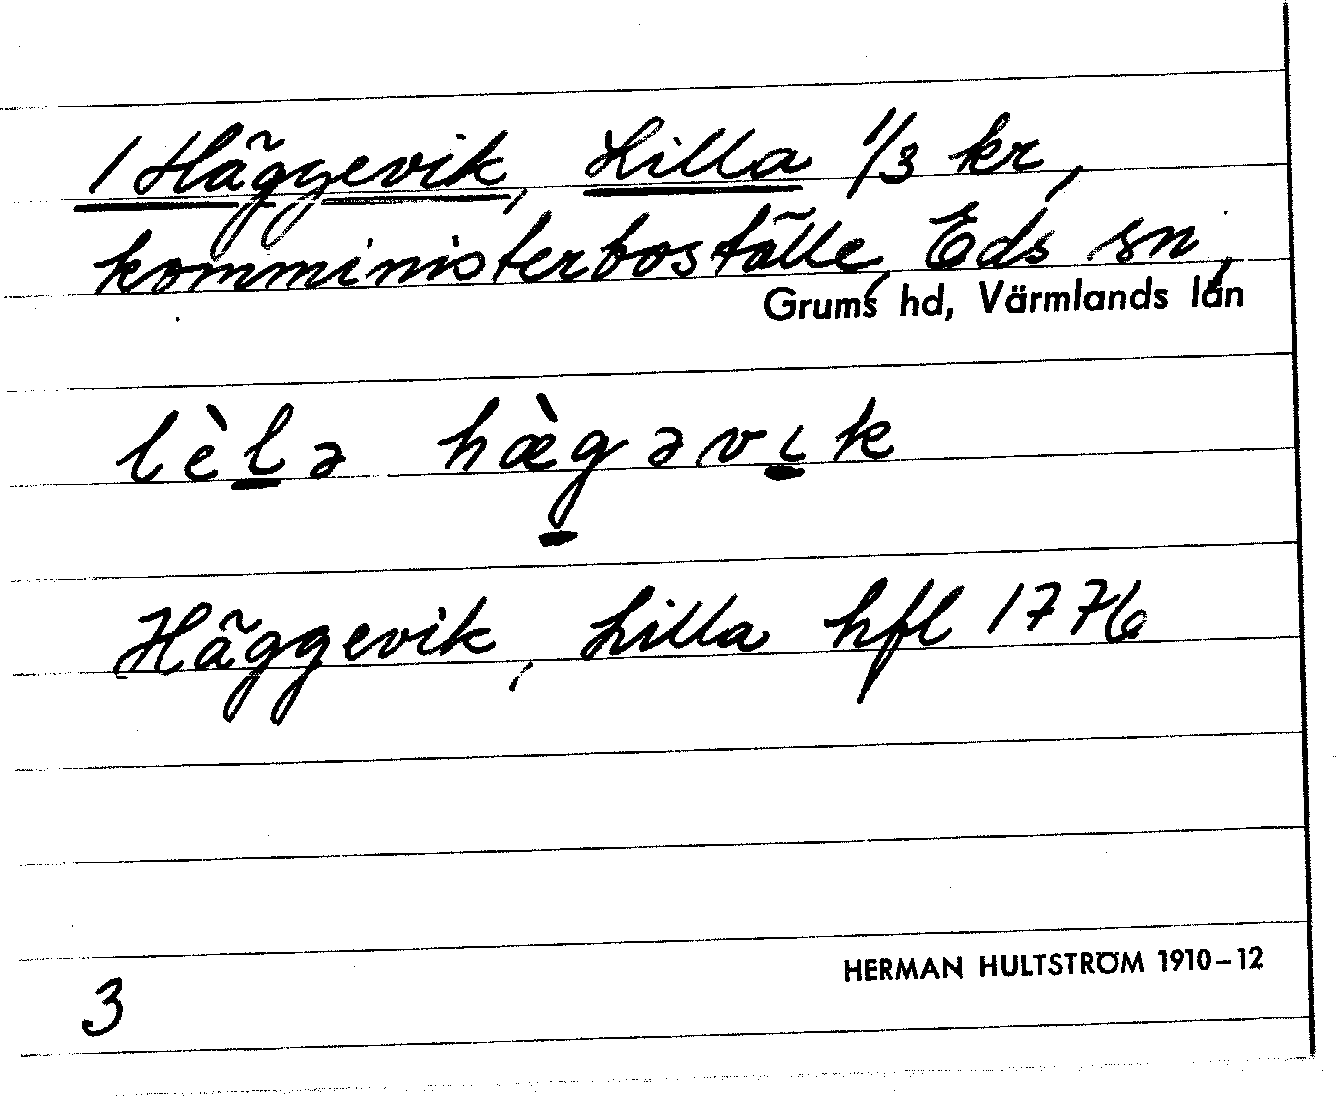 1 Häggevik, Lilla 1/3 kr,
komministerboställe, Eds sn,
Grums hd, Värmlands län
lèlə hægəvɩk
Häggevik, Lilla hfl 1776
HERMAN HULTSTRÖM 1910–12
3